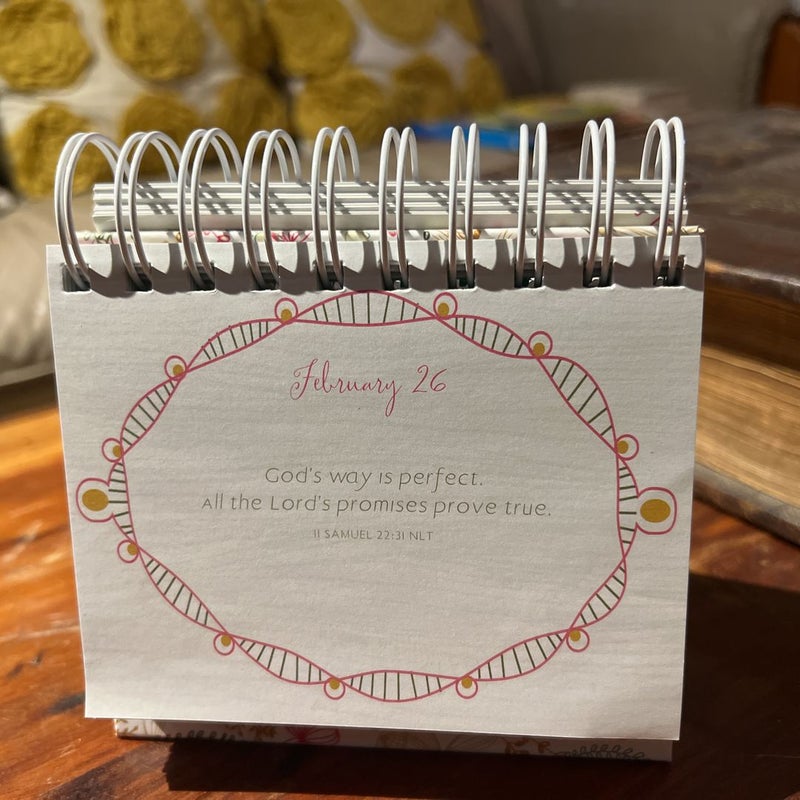 February 26
God's way is perfect.
All the Lord's promises prove true.
II SAMUEL 22:31 NLT